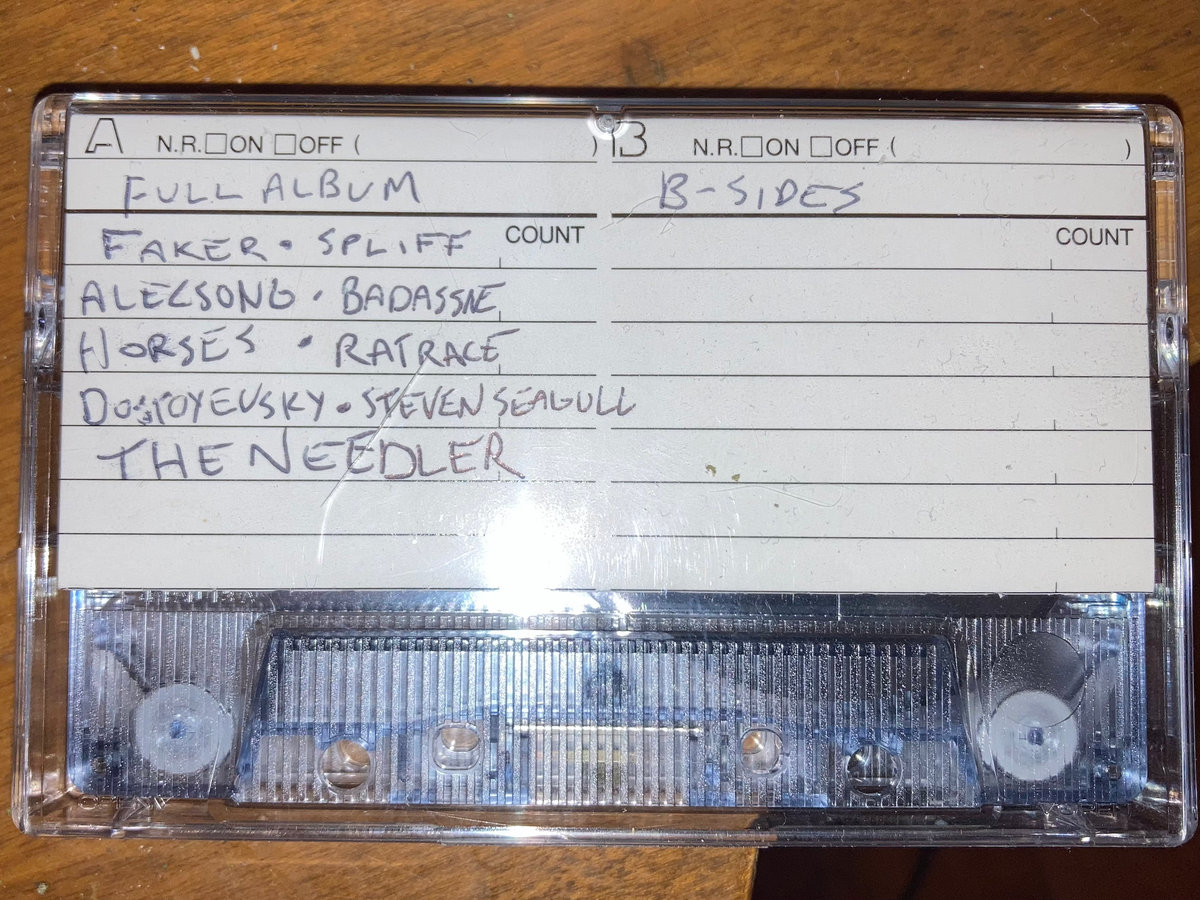 A N.R.☐ON ☐OFF ( )
FULL ALBUM
FAKER • SPLIFF COUNT
ALECSONG • BADASSNE
HORSES • RATRACE
DOSTOYEVSKY • STEVEN SEAGULL
THE NEEDLER
B N.R.☐ON ☐OFF ( )
B-SIDES
COUNT